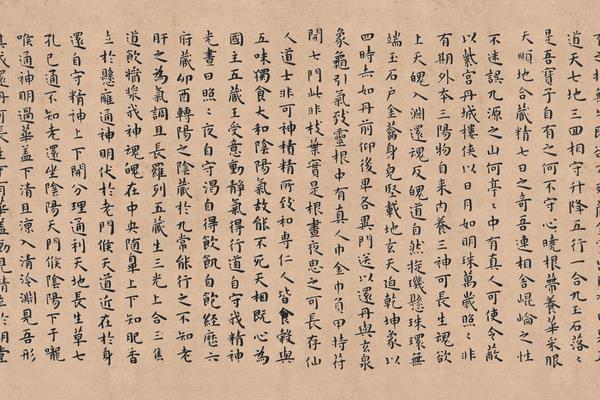 道天七地三四相守升降五行一合九玉石落〻
是吾寶子自有之何不守心曉根蔕養華采服
天順地合藏精七日之奇吾連相舍崐崘之性
不迷誤九源之山何亭〻中有真人可使令蔽
以紫宮丹城樓俠以日月如明珠萬歲照〻非
有期外本三陽物自来内養三神可長生魂欲
上天魄入淵還魂反魄道自然璣懸珠環無
端玉石戶金籥身完堅載地玄天迫乾坤象以
四時赤如丹前仰後卑各異門送以還丹與玄泉
象龜引氣致靈根中有真人巾金巾負甲持符
開七門此非枝葉實是根晝夜思之可長存仙
人道士非可神積精所致和専仁人皆食穀與
五味獨食大和陰陽氣故能不死天相既心為
國主五藏王受意動静氣得行道自守我精神
光晝日照〻夜自守渴自得飲飢自飽經歷六
府藏卯酉轉陽之陰藏於九常能行之不知老
肝之為氣調且長羅列五藏生三光上合三焦
道飲醬漿我神魂魄在中央随鼻上下知肥香
立於懸雍通神明伏於老門候天道近在於身
還自守精神上下開分理通利天地長生草七
孔已通不知老還坐陰陽天門候陰陽下于嚨
喉通神明過華蓋下清且涼入清泠淵見吾形